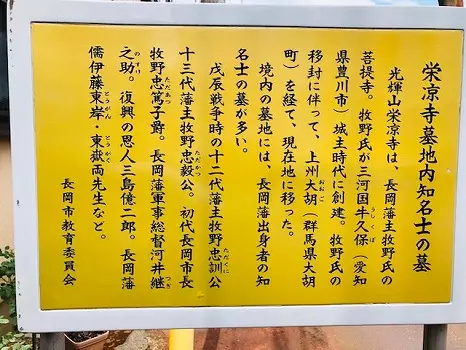 栄凉寺墓地内知名士の墓
光輝山栄凉寺は、長岡藩主牧野氏の
菩提寺。牧野氏が三河国牛久保（愛知
うしくぼ
県豊川市）城主時代に創建。牧野氏の
移封に伴って、上州大胡（群馬県大胡
おおご
町）を経て、現在地に移った。
境内の墓地には、長岡藩出身者の知
名士の墓が多い。
戊辰戦争時の十二代藩主牧野忠訓公
ただくに
十三代藩主牧野忠毅公。初代長岡市長
ただかつ
牧野忠篤子爵。長岡藩軍事総督河井継
ただあつ
つぎ
之助。復興の恩人三島億二郎。長岡藩
のすけ
儒伊藤東岸・東嶽両先生など。
とうがん
とうがく
長岡市教育委員会